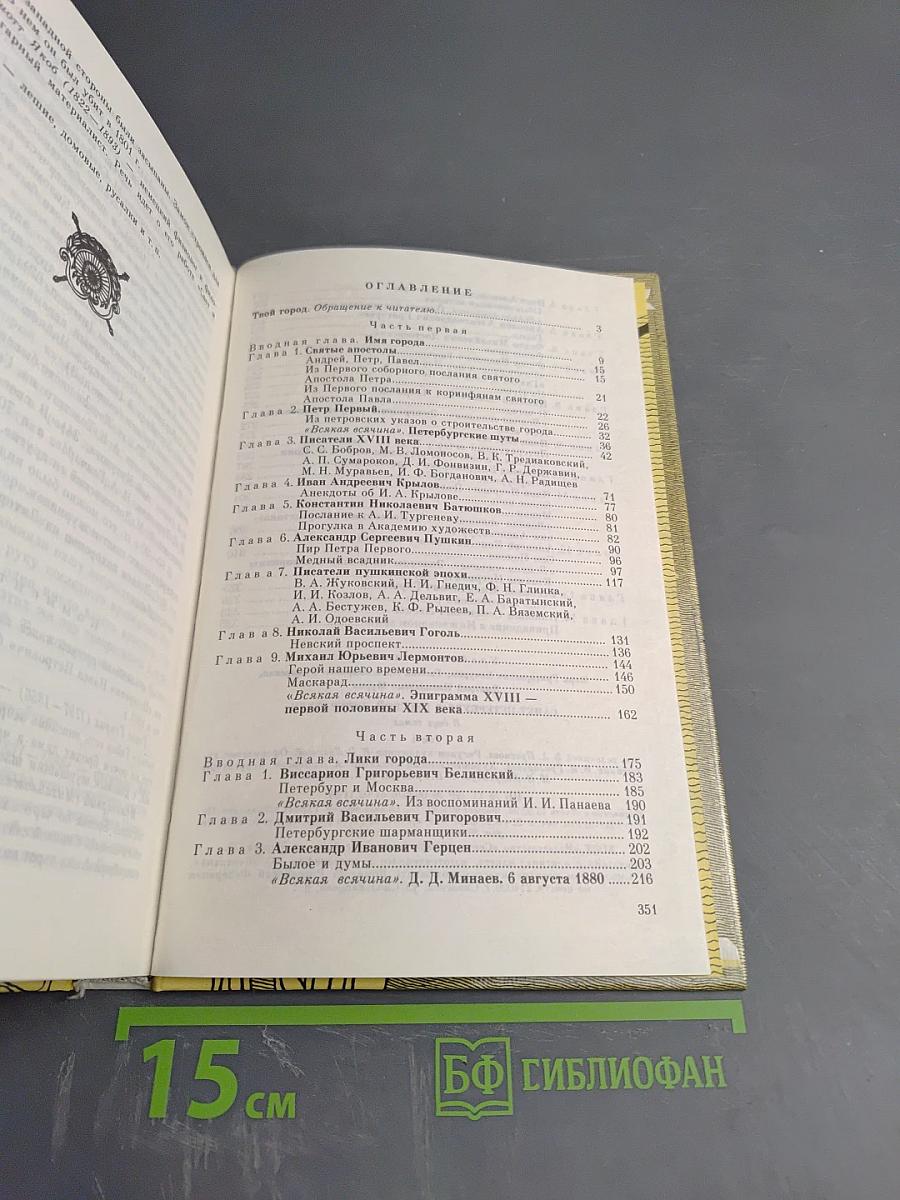 западной стороны были засыпаны.
нем он был убит в 1801 г.
Якоб (1822—1893) — немецкий
материалист. Речь идет о его работе
— лешие, домовые, русалки и т. п.
ОГЛАВЛЕНИЕ
Твой город. Обращение к читателю... 3
Часть первая
Вводная глава. Имя города... 9
Глава 1. Святые апостолы... 15
Андрей, Петр, Павел... 15
Из Первого соборного послания святого
Апостола Петра... 21
Из Первого послания к коринфянам святого
Апостола Павла... 22
Глава 2. Петр Первый... 26
Из петровских указов о строительстве города... 32
«Всякая всячина». Петербургские шуты... 36
Глава 3. Писатели XVIII века... 42
С. С. Бобров, М. В. Ломоносов, В. К. Тредиаковский,
А. П. Сумароков, Д. И. Фонвизин, Г. Р. Державин,
М. Н. Муравьев, И. Ф. Богданович, А. Н. Радищев
Глава 4. Иван Андреевич Крылов... 71
Анекдоты об И. А. Крылове... 77
Глава 5. Константин Николаевич Батюшков... 80
Послание к А. И. Тургеневу... 81
Прогулка в Академию художеств... 82
Глава 6. Александр Сергеевич Пушкин... 90
Пир Петра Первого... 96
Медный всадник... 97
Глава 7. Писатели пушкинской эпохи... 117
В. А. Жуковский, Н. И. Гнедич, Ф. Н. Глинка,
И. И. Козлов, А. А. Дельвиг, Е. А. Баратынский,
А. А. Бестужев, К. Ф. Рылеев, П. А. Вяземский,
А. И. Одоевский
Глава 8. Николай Васильевич Гоголь... 131
Невский проспект... 136
Глава 9. Михаил Юрьевич Лермонтов... 144
Герой нашего времени... 146
Маскарад... 150
«Всякая всячина». Эпиграмма XVIII —
первой половины XIX века... 162
Часть вторая
Вводная глава. Лики города... 175
Глава 1. Виссарион Григорьевич Белинский... 183
Петербург и Москва... 185
«Всякая всячина». Из воспоминаний И. И. Панаева 190
Глава 2. Дмитрий Васильевич Григорович... 191
Петербургские шарманщики... 192
Глава 3. Александр Иванович Герцен... 202
Былое и думы... 203
«Всякая всячина». Д. Д. Минаев. 6 августа 1880 ...... 216
351
15 см
БФ СИБЛИОФАН